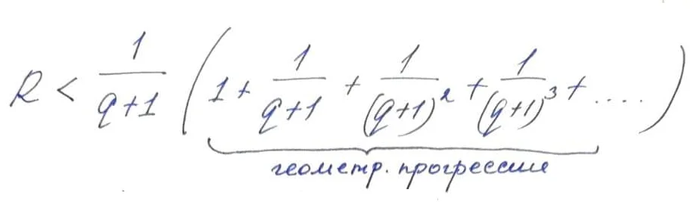 R < \frac{1}{q+1} \left( 1 + \frac{1}{q+1} + \frac{1}{(q+1)^2} + \frac{1}{(q+1)^3} + .... \right)
геометр. прогрессия